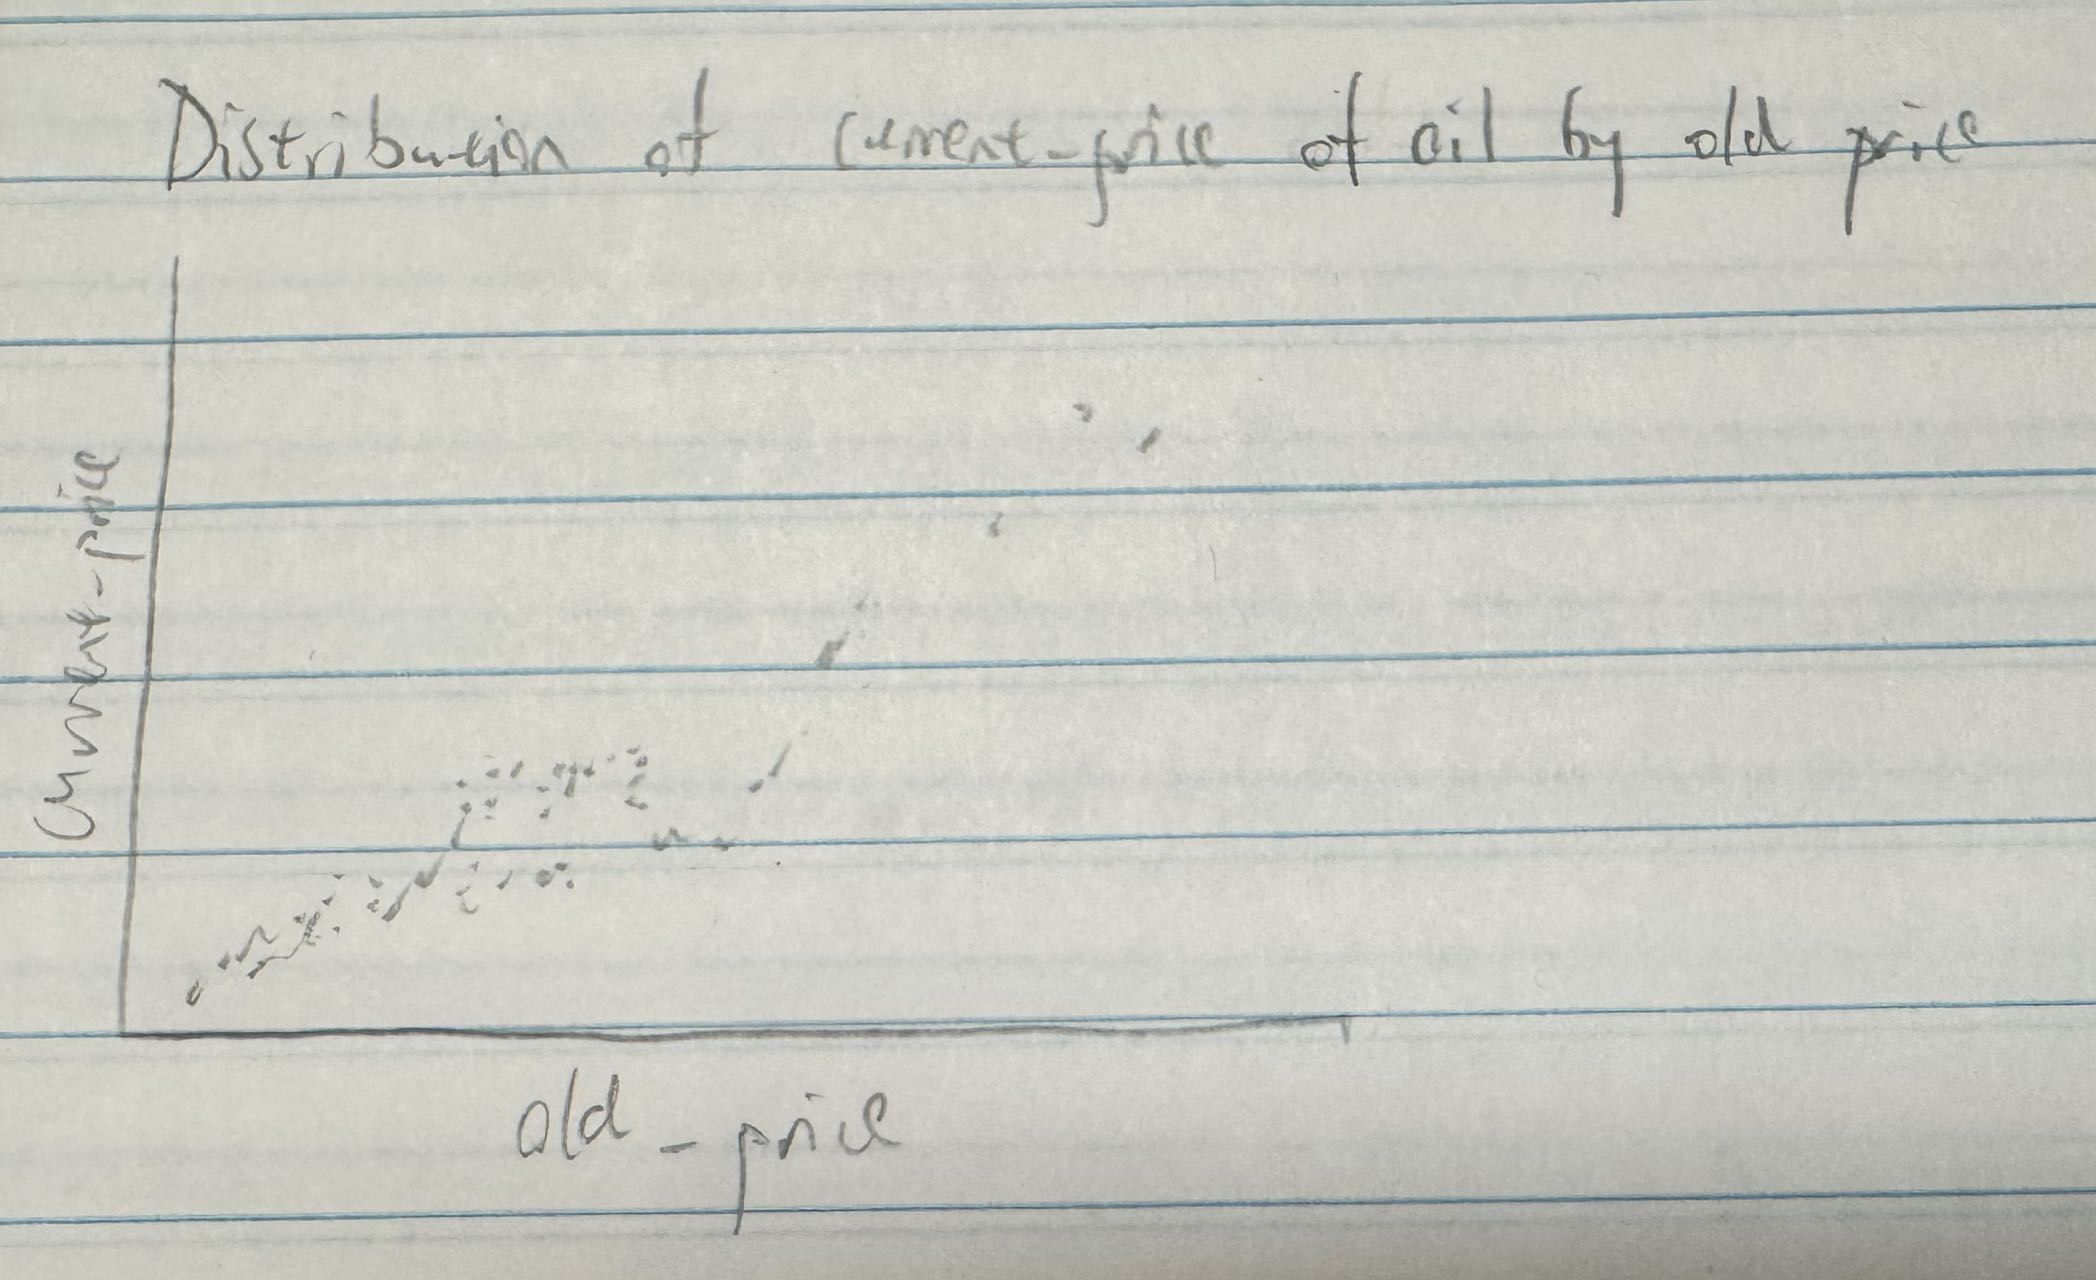 Distribution of current-price of oil by old price
Current-price
old-price